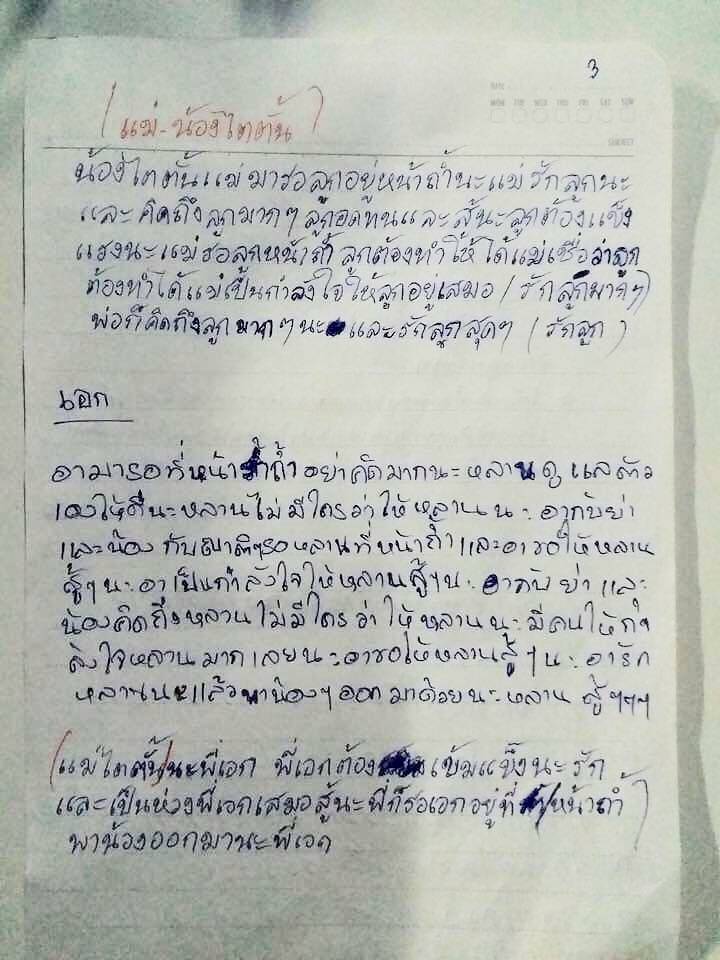 3
DATE
MON TUE WED THU FRI SAT SUN
SUBJECT
(แม่-น้องไตตั้น)
น้องไตตั้นแม่มารอลูกอยู่หน้าถ้ำนะแม่รักลูกนะ
และคิดถึงลูกมากๆลูกอดทนและสู้นะลูกต้องแข็ง
แรงนะแม่รอลูกหน้าถ้ำ ลูกต้องทำให้ได้แม่เชื่อว่าลูก
ต้องทำได้แม่เป็นกำลังใจให้ลูกอยู่เสมอ (รักลูกมากๆ)
พ่อก็คิดถึงลูกมากๆนะ และรักลูกสุดๆ (รักลูก)
เอก
อามารอที่หน้าถ้ำ อย่าคิดมากนะ หลานดูแลตัว
เองให้ดีนะหลานไม่มีใครว่าให้หลานนะ อากับย่า
และน้อง กับญาติๆรอหลานที่หน้าถ้ำและอาขอให้หลาน
สู้ๆนะ อาเป็นกำลังใจให้หลานสู้ๆนะ อากับย่าและ
น้องคิดถึงหลานไม่มีใครว่าให้หลานนะ มีคนให้กำ
ลังใจหลานมากเลยนะ อาขอให้หลานสู้ๆนะ อารัก
หลานนะแล้วพาน้องๆออกมาด้วยนะ หลาน สู้ๆๆๆ
(แม่ไตตั้น)นะพี่เอก พี่เอกต้อง เข้มแข็งนะรัก
และเป็นห่วงพี่เอกเสมอสู้นะพี่ก็รอเอกอยู่ที่ หน้าถ้ำ)
พาน้องออกมานะพี่เอก